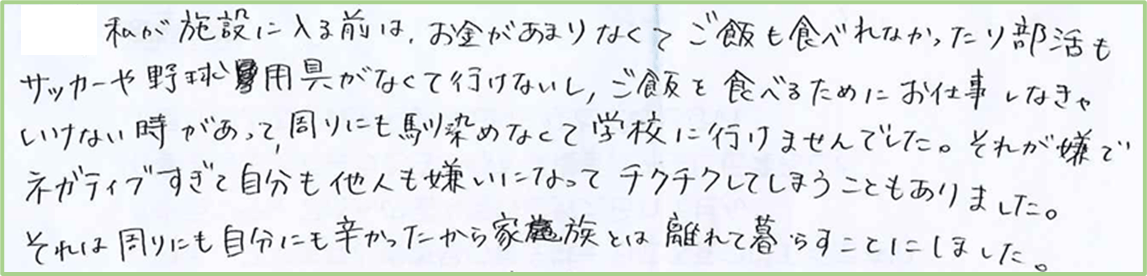 私が施設に入る前は、お金があまりなくてご飯も食べれなかったり部活も
サッカーや野球用具がなくて行けないし、ご飯を食べるためにお仕事しなきゃ
いけない時があって、周りにも馴染めなくて学校に行けませんでした。それが嫌で
ネガティブすぎて自分も他人も嫌いになってチクチクしてしまうこともありました。
それは周りにも自分にも辛かったから家族とは離れて暮らすことにしました。